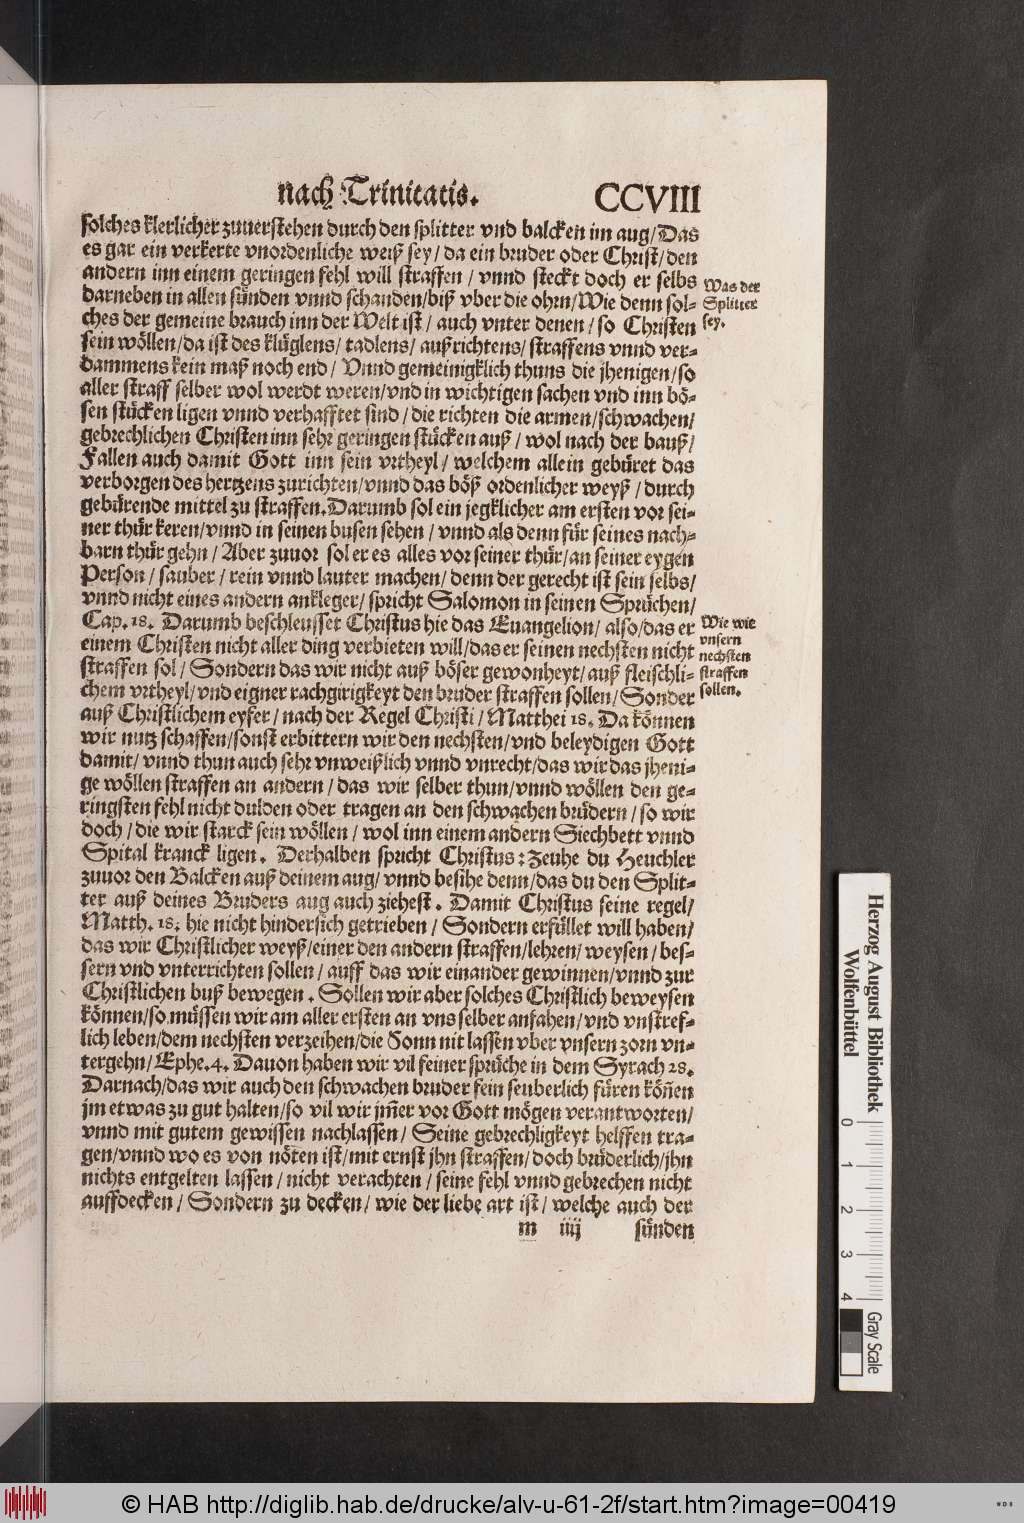 nach Trinitatis. CCVIII
solches klerlicher zuuerstehen durch den splitter vnd balcken im aug/ Das
es gar ein verkerte vnordenliche weiß sey/ da ein bruder oder Christ/ den
andern inn einem geringen fehl will straffen/ vnnd steckt doch er selbs
darneben in allen sünden vnnd schanden/ biß vber die ohrn/ Wie denn sol-
ches der gemeine brauch inn der Welt ist/ auch vnter denen/ so Christen
sein wöllen/ da ist des klüglens/ tadlens/ außrichtens/ straffens vnnd ver-
dammens kein maß noch end/ Vnnd gemeinigklich thuns die jhenigen/ so
aller straff selber wol werdt weren/ vnd in wichtigen sachen vnd inn bö-
sen stücken ligen vnnd verhafftet sind/ die richten die armen/ schwachen/
gebrechlichen Christen inn sehr geringen stücken auß/ wol nach der bauß/
Fallen auch damit Gott inn sein vrtheyl/ welchem allein gebüret das
verborgen des hertzens zurichten/ vnnd das böß ordenlicher weyß/ durch
gebürende mittel zu straffen. Darumb sol ein jegklicher am ersten vor sei-
ner thür keren/ vnnd in seinen busen sehen/ vnnd als denn für seines nach-
barn thür gehn/ Aber zuuor sol er es alles vor seiner thür/ an seiner eygen
Person/ sauber/ rein vnnd lauter machen/ denn der gerecht ist sein selbs/
vnnd nicht eines andern ankleger/ spricht Salomon in seinen Sprüchen/
Cap. 18. Darumb beschleusset Christus hie das Euangelion/ also/ das er
einem Christen nicht aller ding verbieten will/ das er seinen nechsten nicht
straffen sol/ Sondern das wir nicht auß böser gewonheyt/ auß fleischli-
chem vrtheyl/ vnd eigner rachgirigkeyt den bruder straffen sollen/ Sonder
auß Christlichem eyfer/ nach der Regel Christi/ Matthei 18. Da können
wir nutz schaffen/ sonst erbittern wir den nechsten/ vnd beleydigen Gott
damit/ vnnd thun auch sehr vnweißlich vnnd vnrecht/ das wir das jheni-
ge wöllen straffen an andern/ das wir selber thun/ vnnd wöllen den ge-
ringsten fehl nicht dulden oder tragen an den schwachen brüdern/ so wir
doch/ die wir starck sein wöllen/ wol inn einem andern Siechbett vnnd
Spital kranck ligen. Derhalben spricht Christus: Zeuhe du Heuchler
zuuor den Balcken auß deinem aug/ vnnd besihe denn/ das du den Split-
ter auß deines Bruders aug auch ziehest. Damit Christus seine regel/
Matth. 18: hie nicht hindersich getrieben/ Sondern erfüllet will haben/
das wir Christlicher weyß/ einer den andern straffen/ lehren/ weysen/ bes-
sern vnd vnterrichten sollen/ auff das wir einander gewinnen/ vnnd zur
Christlichen buß bewegen. Sollen wir aber solches Christlich beweysen
können/ so müssen wir am aller ersten an vns selber anfahen/ vnd vnstref-
lich leben/ dem nechsten verzeihen/ die Sonn nit lassen vber vnsern zorn vn-
tergehn/ Ephe. 4. Dauon haben wir vil feiner sprüche in dem Syrach 28.
Darnach/ das wir auch den schwachen bruder fein seuberlich füren könen̄
jm etwas zu gut halten/ so vil wir jm̄er vor Gott mögen verantworten/
vnnd mit gutem gewissen nachlassen/ Seine gebrechligkeyt helffen tra-
gen/ vnnd wo es von nöten ist/ mit ernst jhn straffen/ doch brüderlich/ jhn
nichts entgelten lassen/ nicht verachten/ seine fehl vnnd gebrechen nicht
auffdecken/ Sondern zu decken/ wie der liebe art ist/ welche auch der
m iiij sünden
Was der
Splitter
sey.
Wie wir
vnsern
nechsten
straffen
sollen.
Herzog August Bibliothek
Wolfenbüttel
0 1 2 3 4
Gray Scale
© HAB http://diglib.hab.de/drucke/alv-u-61-2f/start.htm?image=00419